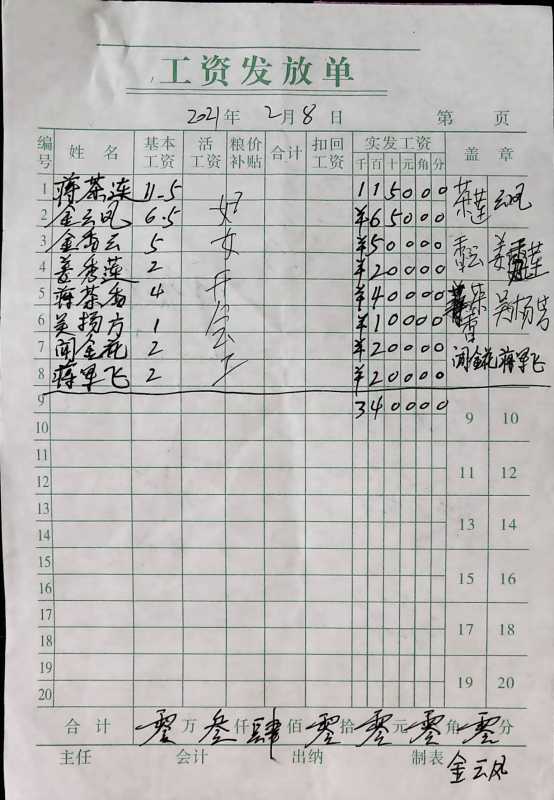 工资发放单
2021年 2月8日 第 页
编号 姓名 基本工资 活工资 粮价补贴 合计 扣回工资 实发工资 千百十元角分 盖章
1 蒋茶莲 11.5 妇 115000 茶莲 云凤
2 金云凤 6.5 ¥65000
3 金香云 5 女 ¥50000 香云 姜秀莲
4 姜秀莲 2 开 ¥20000
5 蒋茶香 4 会 ¥40000 茶香
6 杨方 1 工 ¥10000
7 闻金花 2 ¥20000 闻金花 蒋军飞
8 蒋军飞 2 ¥20000
9 340000
10 9 10
11
12 11 12
13
14 13 14
15
16 15 16
17
18 17 18
19
20 19 20
合计 零万叁仟肆佰零拾零元零角零分
主任 会计 出纳 制表 金云凤